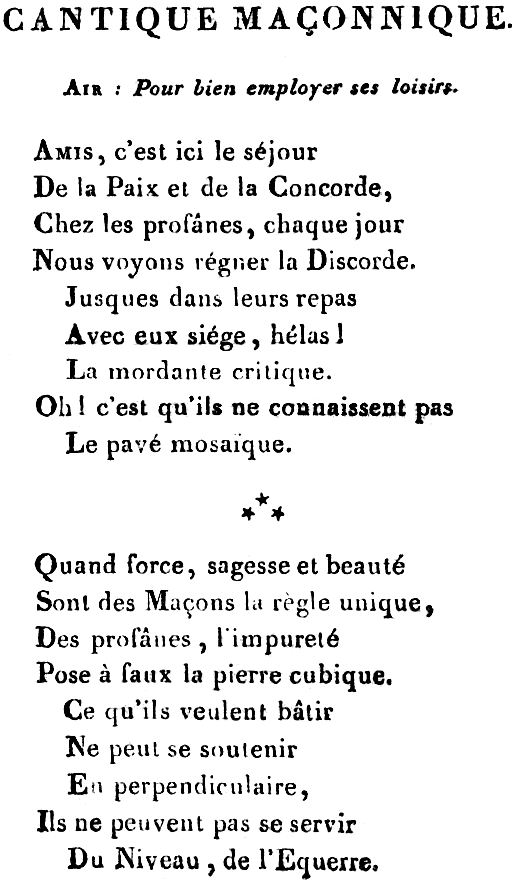 CANTIQUE MAÇONNIQUE.
AIR : Pour bien employer ses loisirs.
AMIS, c'est ici le séjour
De la Paix et de la Concorde,
Chez les profânes, chaque jour
Nous voyons régner la Discorde.
Jusques dans leurs repas
Avec eux siége, hélas!
La mordante critique.
Oh! c'est qu'ils ne connaissent pas
Le pavé mosaïque.
Quand force, sagesse et beauté
Sont des Maçons la règle unique,
Des profânes, l'impureté
Pose à faux la pierre cubique.
Ce qu'ils veulent bâtir
Ne peut se soutenir
En perpendiculaire,
Ils ne peuvent pas se servir
Du Niveau, de l'Equerre.